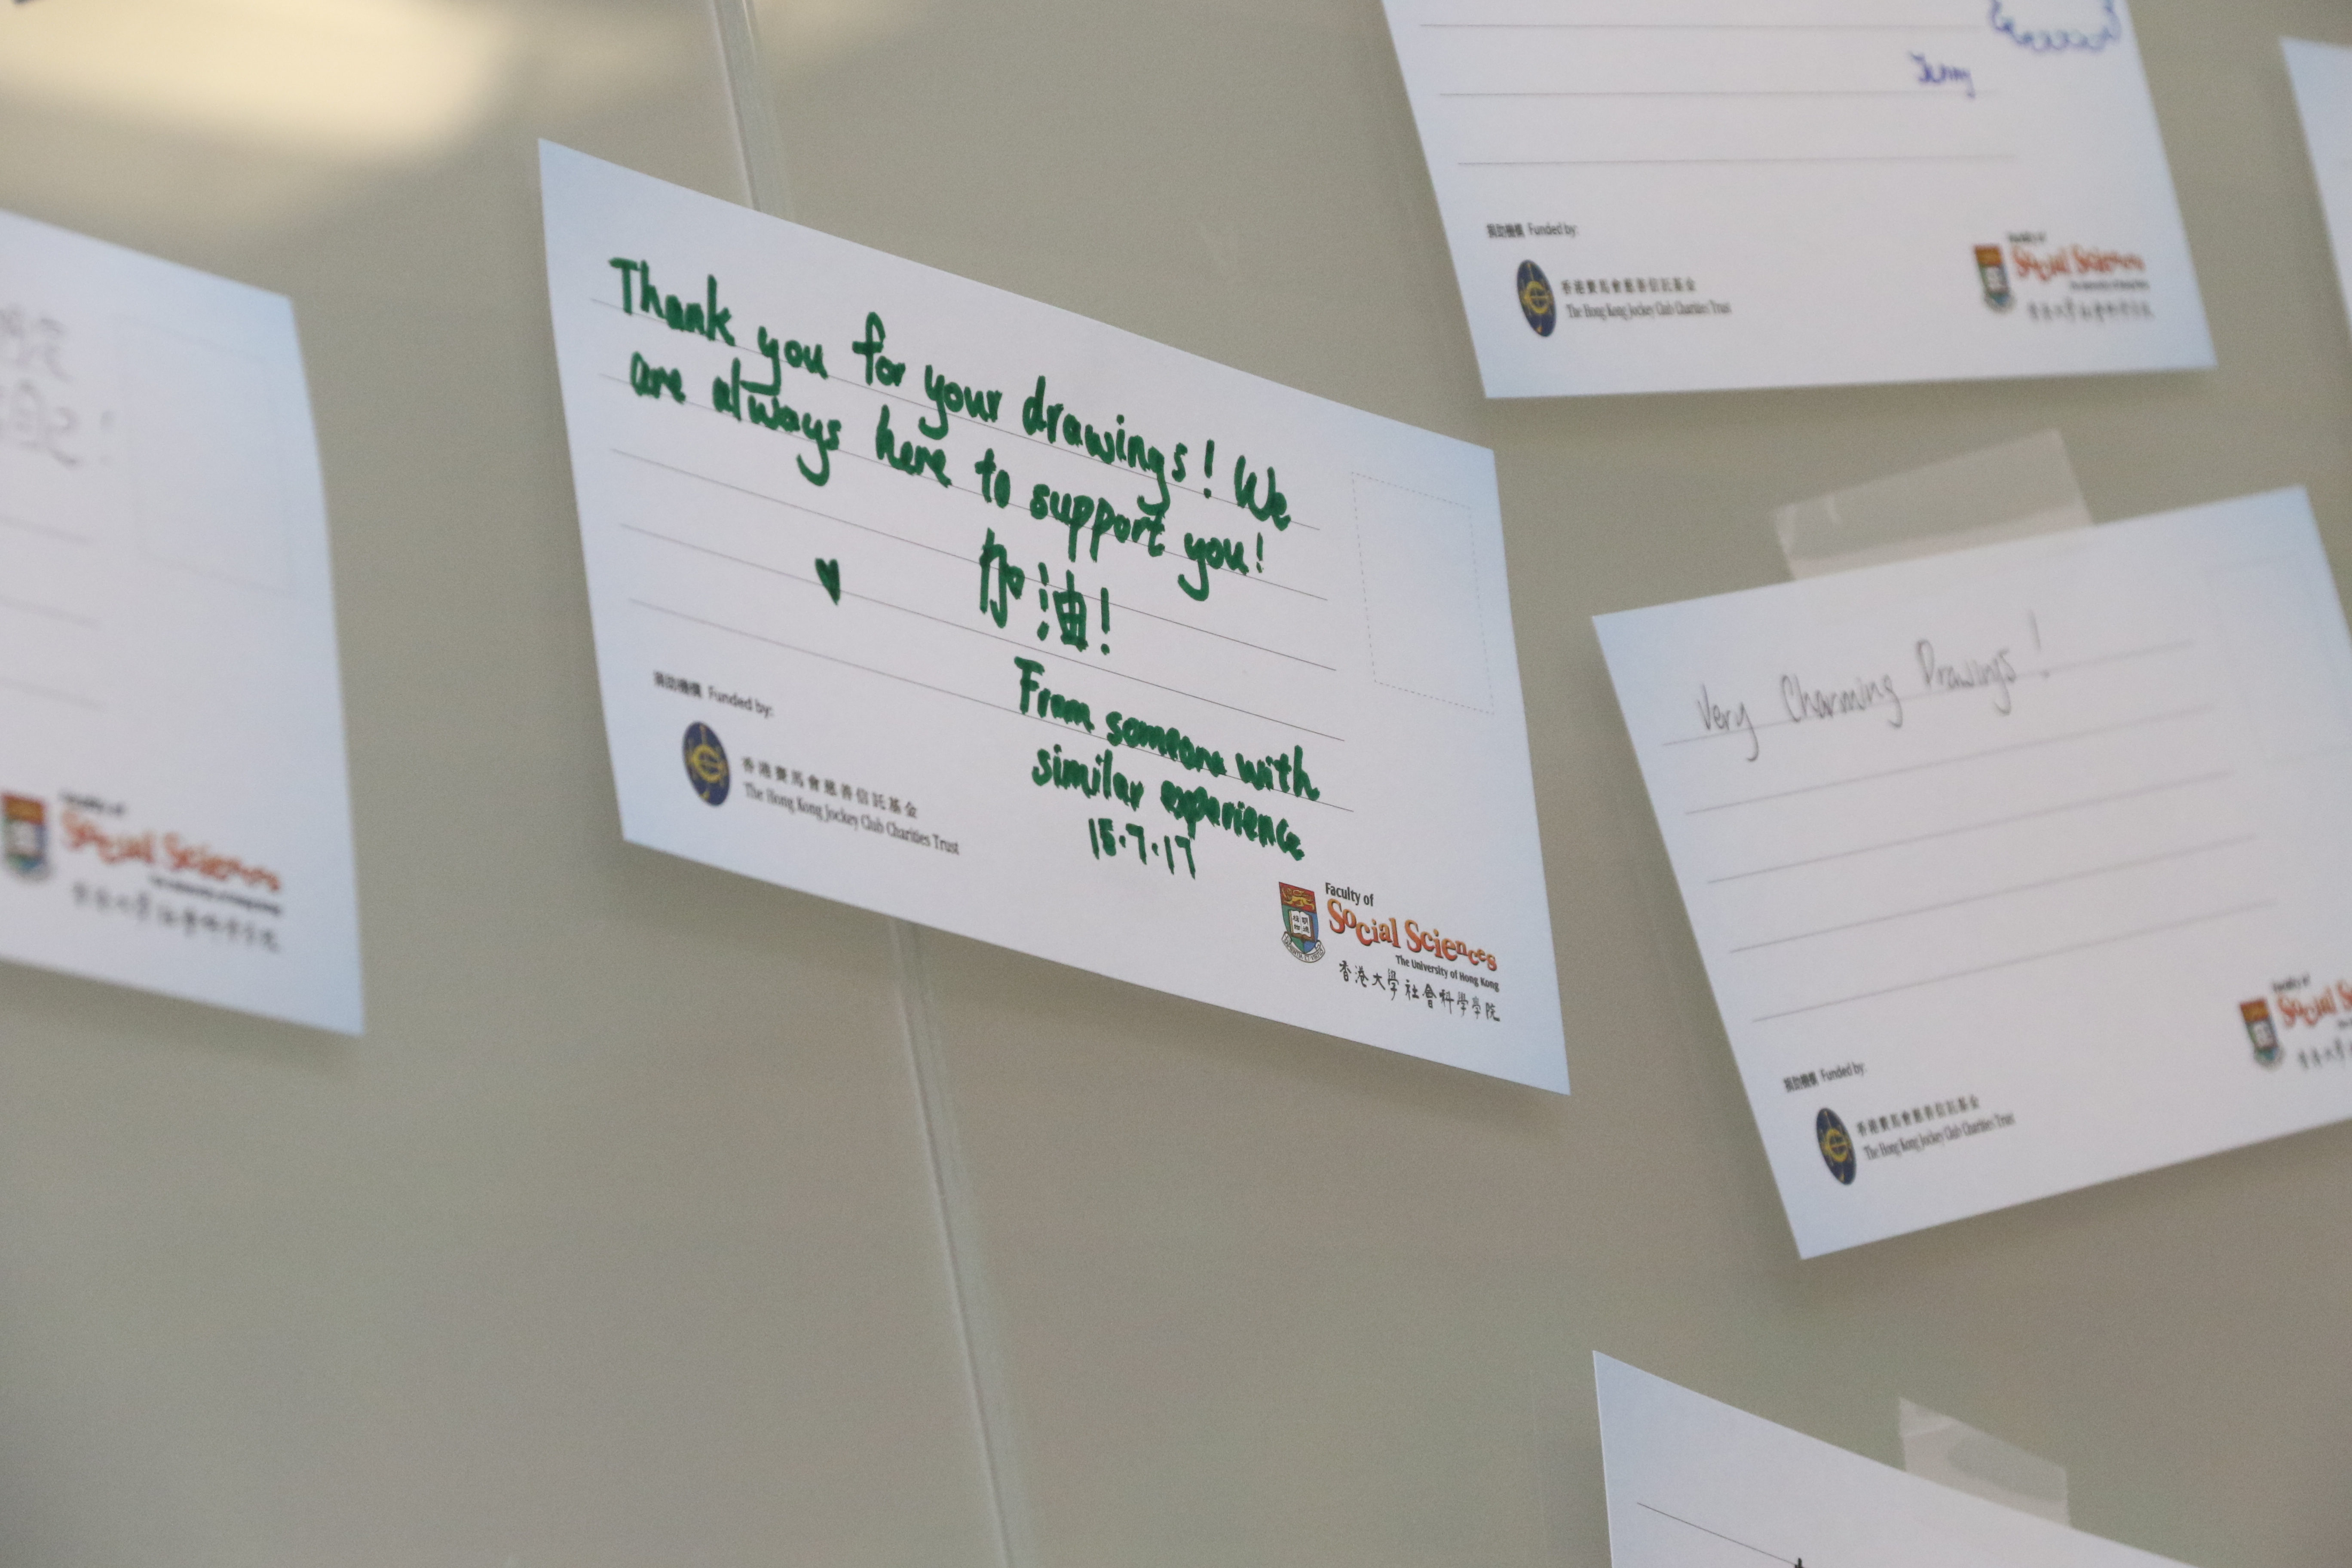 Jenny
捐助機構 Funded by:
香港賽馬會慈善信託基金
The Hong Kong Jockey Club Charities Trust
Faculty of
Social Sciences
The University of Hong Kong
香港大學社會科學學院
Thank you for your drawings! We
are always here to support you!
加油!
♥
From someone with
similar experience
15.7.17
捐助機構 Funded by:
香港賽馬會慈善信託基金
The Hong Kong Jockey Club Charities Trust
Faculty of
Social Sciences
The University of Hong Kong
香港大學社會科學學院
Faculty of
Social Sciences
The University of Hong Kong
香港大學社會科學學院
Very Charming Drawings!
捐助機構 Funded by:
香港賽馬會慈善信託基金
The Hong Kong Jockey Club Charities Trust
Faculty of
Social